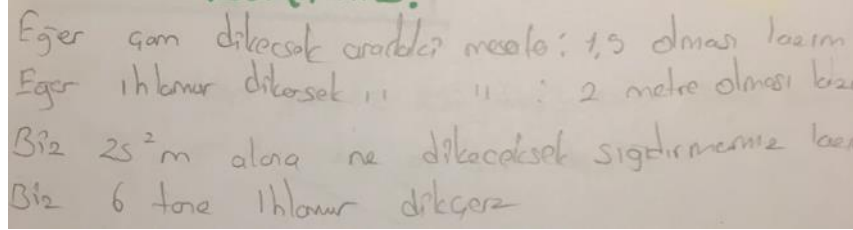 Eğer çam dikecsek aradaki mesafe : 1,5 olması lazım
Eger ıhlamur dikersek ,, ,, : 2 metre olması laz
Biz 25²m alana ne dikeceksek sıgdırmamız laz
Biz 6 tane ıhlamur dikçez